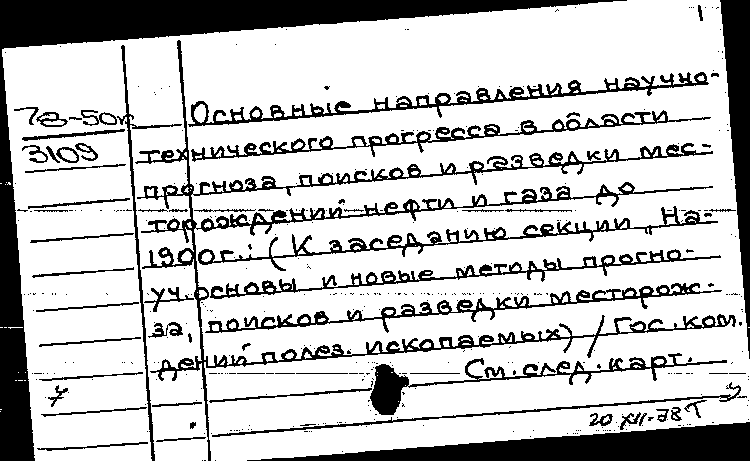 1
78-50к Основные направления научно-
3109 технического прогресса в области
прогноза, поисков и разведки мес-
торождений нефти и газа до
1900г.: (К заседанию секции „На-
уч. основы и новые методы прогно-
за, поисков и разведки месторож-
дений полез. ископаемых) / Гос. ком.
См. след. карт.
20 XII-78